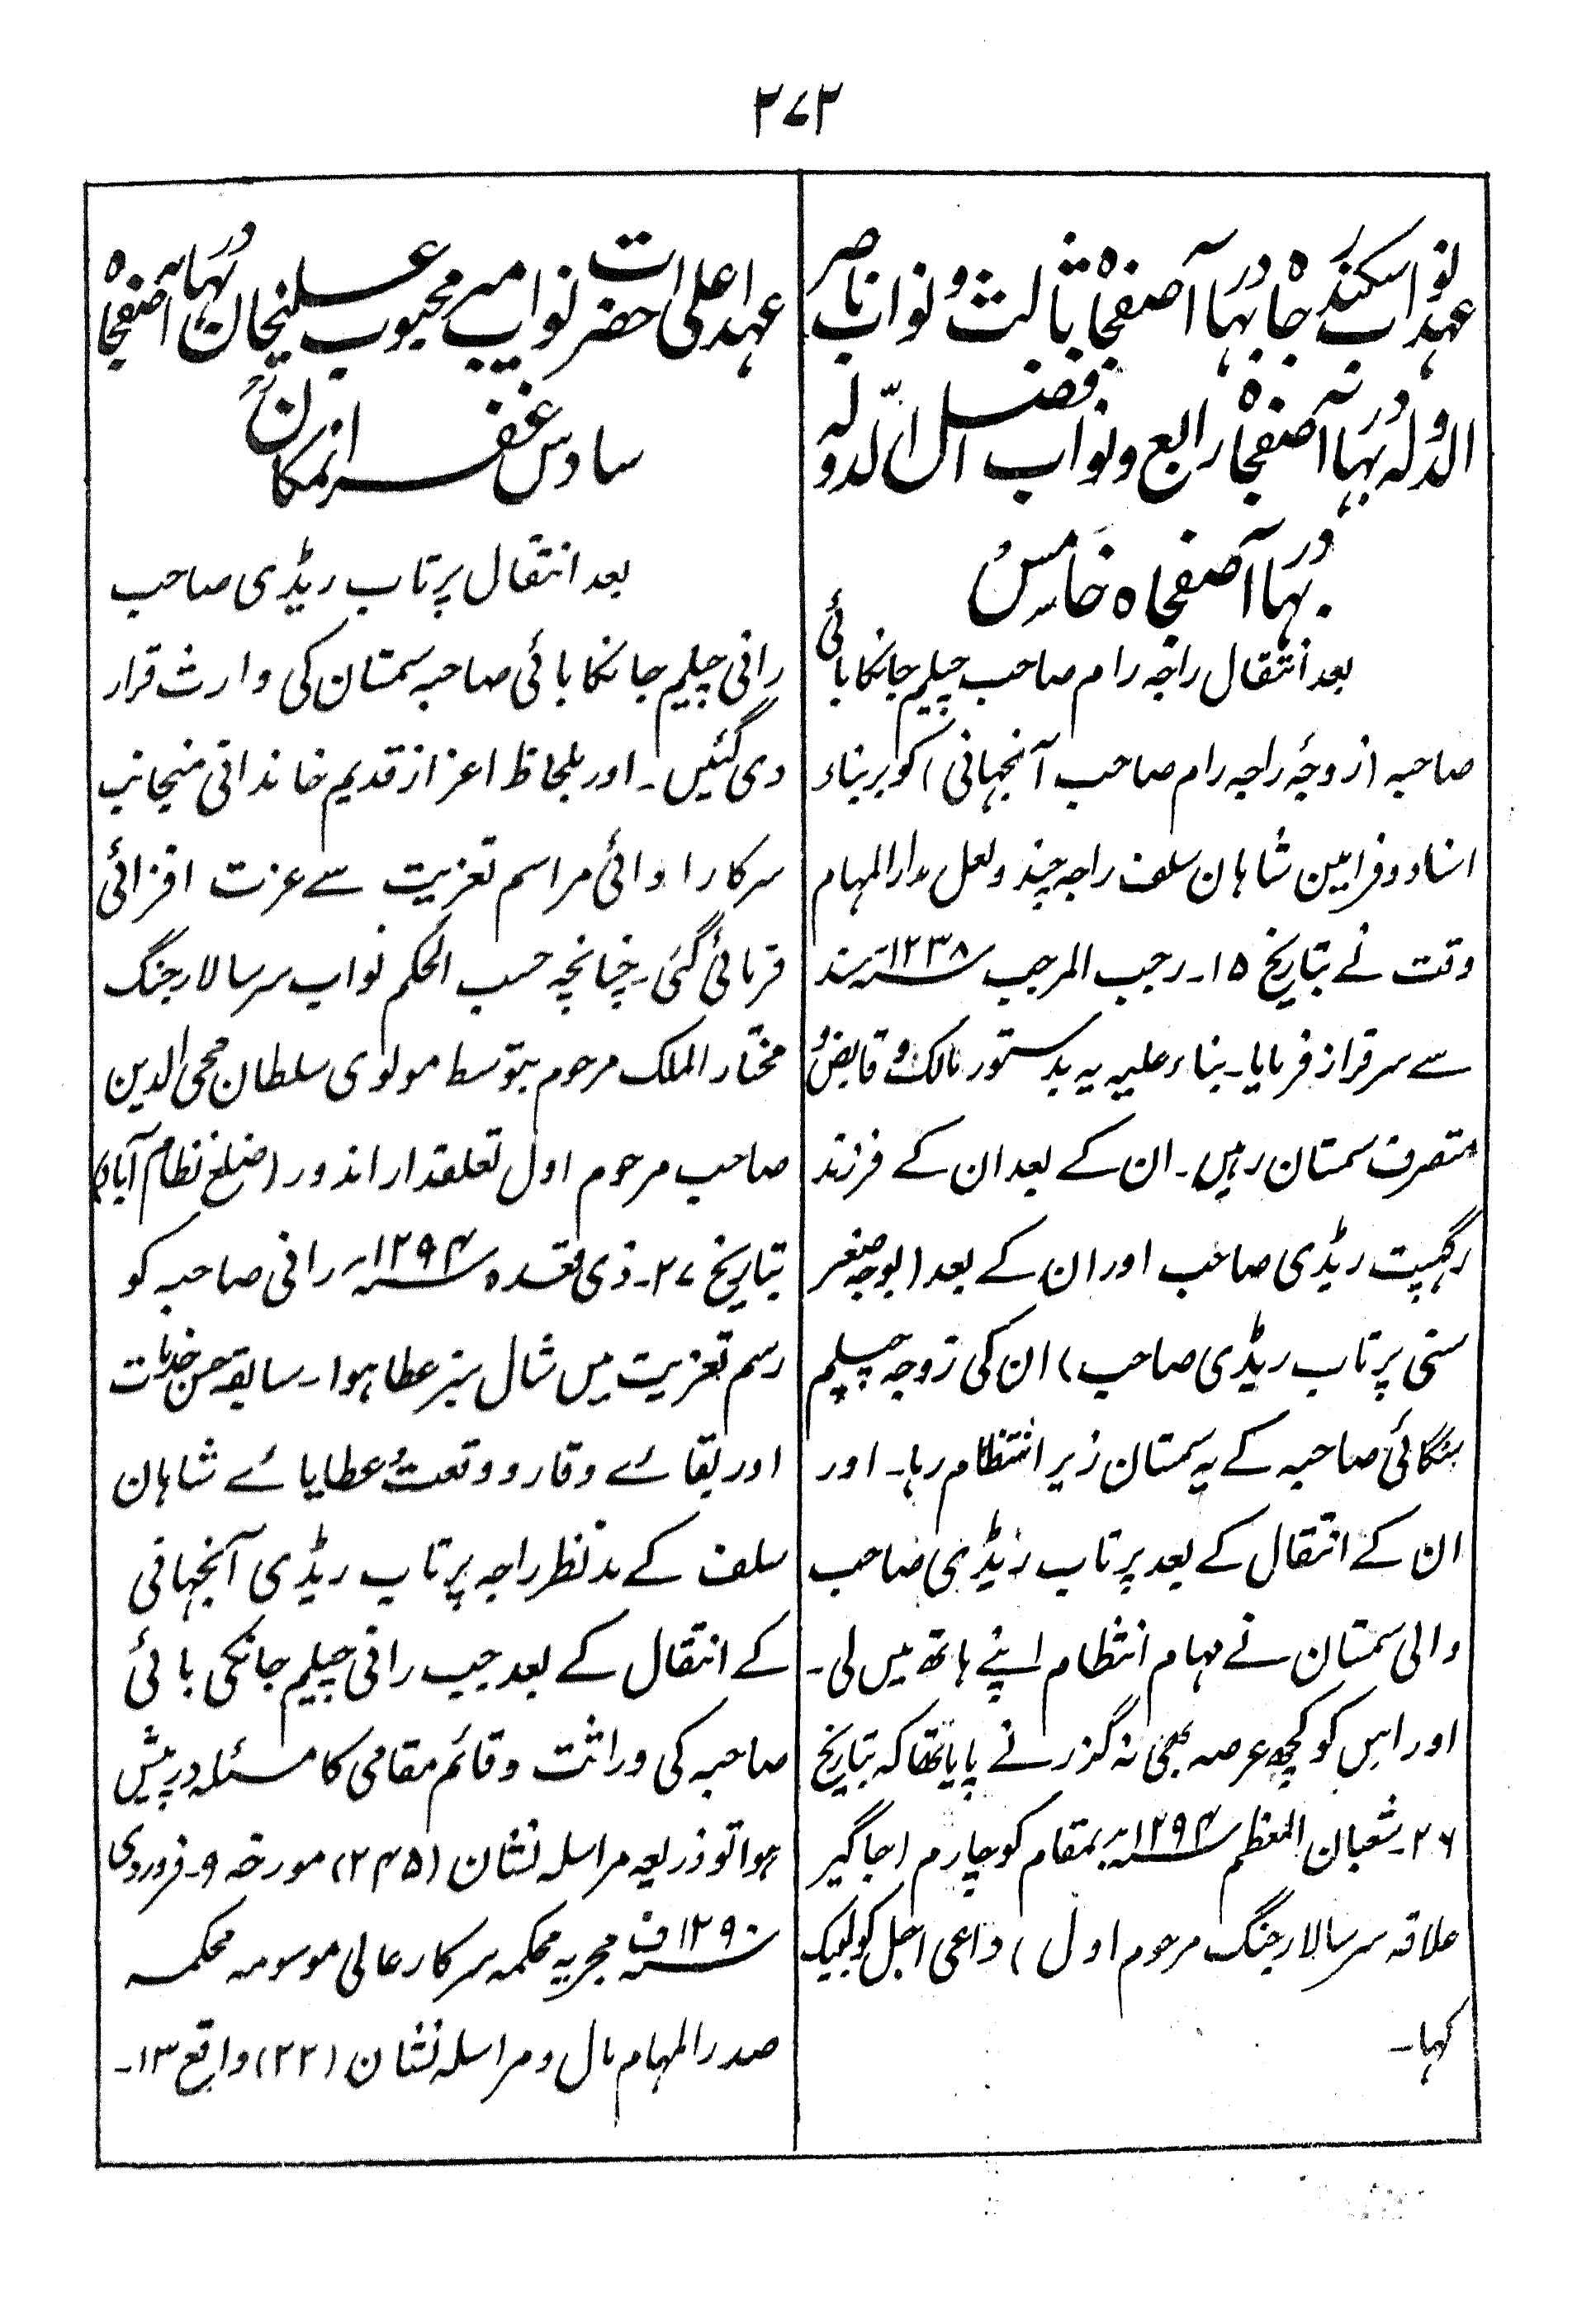 ۲۷۲
عہد نواب سکندر جاہ بہادر آصفجاہ ثالث و نواب ناصر
الدولہ بہادر آصفجاہ رابع و نواب افضل الدولہ
بہادر آصفجاہ خامس
بعد انتقال راجہ رام صاحب چیلم جانکا بائی
صاحبہ (زوجۂ راجہ رام صاحب آنجہانی) کو بربناء
اسناد و فرامین شاہان سلف راجہ چند ولعل مدار المہام
وقت نے بتاریخ ۱۵۔ رجب المرجب ۱۲۳۸ سنہ سند
سے سرفراز فرمایا۔ بناءً علیہ یہ بدستور مالک و قابض و
متصرف سمستان رہیں۔ ان کے بعد ان کے فرزند
رگھپت ریڈی صاحب اور ان کے بعد (بوجہ صغر
سنی پرتاب ریڈی صاحب) ان کی زوجہ چیلم
صاحبہ کے یہ سمستان زیر انتظام رہا۔ اور
ان کے انتقال کے بعد پرتاب ریڈی صاحب
والی سمستان نے مہام انتظام اپنے ہاتھ میں لی۔
اور اس کو کچھ عرصہ بھی نہ گذرنے پایا تھا کہ بتاریخ
۲۶۔ شعبان المعظم سنہ ۱۲۹۴ بمقام کوچارم (جاگیر
علاقہ سرسالار جنگ مرحوم اول) داعی اجل کو لبیک
کہا۔
عہد اعلی حضرت نواب میر محبوب علیخان بہادر آصفجاہ
سادس غفرانمکانؒ
بعد انتقال پرتاب ریڈی صاحب
رانی چیلم جانکا بائی صاحبہ سمستان کی وارث قرار
دی گئیں۔ اور بلحاظ اعزاز قدیم خاندانی منجانب
سرکار ادائی مراسم تعزیت سے عزت افزائی
فرمائی گئی۔ چنانچہ حسب الحکم نواب سرسالار جنگ
مختار الملک مرحوم بتوسط مولوی سلطان محی الدین
صاحب مرحوم اول تعلقدار اندور (ضلع نظام آباد)
بتاریخ ۲۷۔ ذی قعدہ سنہ ۱۲۹۴ رانی صاحبہ کو
رسم تعزیت میں شال سبز عطا ہوا۔ سابقہ حسن خدمات
اور بقائے وقار و وقعت عطایائے شاہان
سلف کے مدنظر راجہ پرتاب ریڈی آنجہانی
کے انتقال کے بعد جب رانی چیلم جانکی بائی
صاحبہ کی وراثت و قائم مقامی کا مسئلہ درپیش
ہوا تو ذریعہ مراسلہ نشان (۲۴۵) مورخہ ۹۔ فروردی
سنہ ۱۲۹۰ف مجریہ محکمہ سرکار عالی موسومہ محکمہ
صدر المہام مال و مراسلہ نشان (۲۲) واقع ۱۳۔